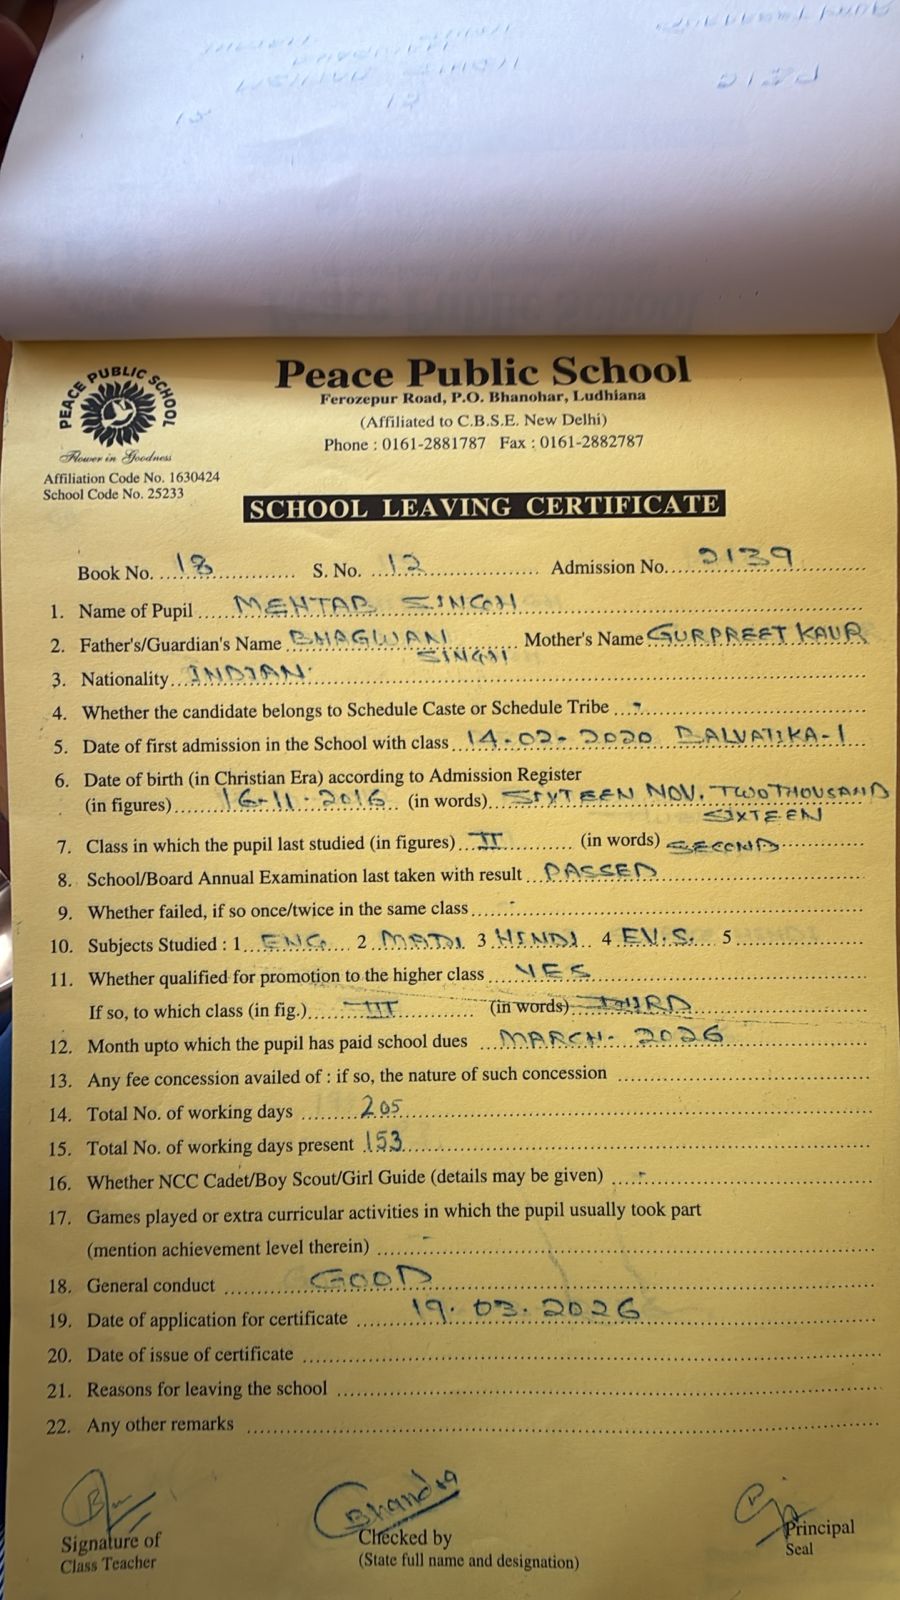 PEACE PUBLIC SCHOOL
Flower in Goodness
Affiliation Code No. 1630424
School Code No. 25233
Peace Public School
Ferozepur Road, P.O. Bhanohar, Ludhiana
(Affiliated to C.B.S.E. New Delhi)
Phone : 0161-2881787 Fax : 0161-2882787
SCHOOL LEAVING CERTIFICATE
Book No. 18 S. No. 12 Admission No. 2139
1. Name of Pupil MEHTAB SINGH
2. Father's/Guardian's Name BHAGWAN SINGH Mother's Name GURPREET KAUR
3. Nationality INDIAN
4. Whether the candidate belongs to Schedule Caste or Schedule Tribe -
5. Date of first admission in the School with class 14-02-2020 BALVATIKA-I
6. Date of birth (in Christian Era) according to Admission Register
(in figures) 16-11-2016 (in words) SIXTEEN NOV. TWO THOUSAND
SIXTEEN
7. Class in which the pupil last studied (in figures) II (in words) SECOND
8. School/Board Annual Examination last taken with result PASSED
9. Whether failed, if so once/twice in the same class -
10. Subjects Studied : 1 ENG 2 MATH 3 HINDI 4 EV.S. 5
11. Whether qualified for promotion to the higher class YES
If so, to which class (in fig.) III (in words) THIRD
12. Month upto which the pupil has paid school dues MARCH-2026
13. Any fee concession availed of : if so, the nature of such concession
14. Total No. of working days 205
15. Total No. of working days present 153
16. Whether NCC Cadet/Boy Scout/Girl Guide (details may be given) -
17. Games played or extra curricular activities in which the pupil usually took part
(mention achievement level therein) -
18. General conduct GOOD
19. Date of application for certificate 19.03.2026
20. Date of issue of certificate
21. Reasons for leaving the school
22. Any other remarks
Signature of
Class Teacher
Checked by
(State full name and designation)
Principal
Seal